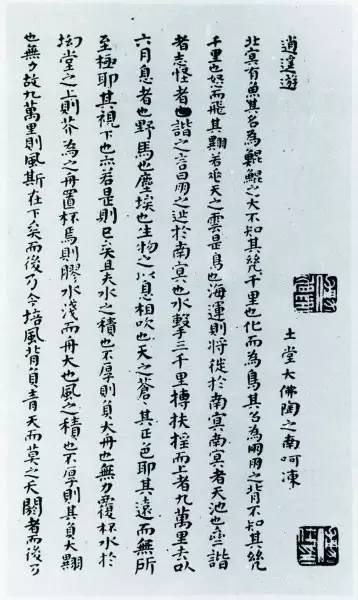 土堂大佛陶之南呵凍
逍遙遊
北冥有魚其名為鯤鯤之大不知其幾千里也化而為鳥其名為鵬鵬之背不知其幾
千里也怒而飛其翼若垂天之雲是鳥也海運則將徙於南冥南冥者天池也齊諧
者志怪者也諧之言曰鵬之徙於南冥也水擊三千里摶扶搖而上者九萬里去以
六月息者也野馬也塵埃也生物之以息相吹也天之蒼〻其正色耶其遠而無所
至極耶其視下也亦若是則已矣且夫水之積也不厚則負大舟也無力覆杯水於
坳堂之上則芥為之舟置杯焉則膠水淺而舟大也風之積也不厚則其負大翼
也無力故九萬里則風斯在下矣而後乃今培風背負青天而莫之夭閼者而後乃